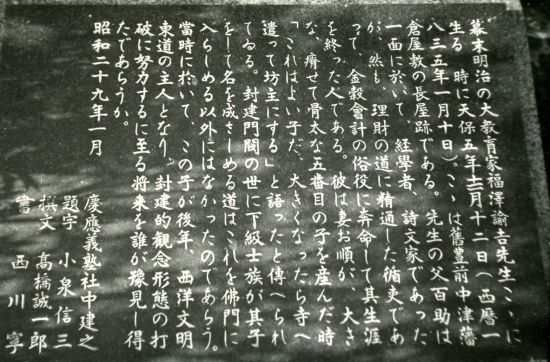 幕末明治の大教育家福澤諭吉先生こゝに
生る　時に天保五年十二月十二日（西暦一
八三五年一月十日）。こゝは舊豊前中津藩
倉屋敷の長屋跡である。先生の父百助は
一面に於いて　經學者、詩文家であった
が、然も、理財の道に精通した循吏であ
って、金穀會計の俗役に奔命して其生涯
を終った人である。彼は妻お順が、大き
な、瘠せて骨太な五番目の子を産んだ時
「これはよい子だ、大きくなったら寺へ
遣って坊主にする」と語ったと傳へられ
てゐる。封建門閥の世に下級士族が其子
をして名を成さしめる道はこれを佛門に
入らしめる以外にはなかったのであらう。
當時に於いて、この子が後年　西洋文明
東道の主人となり、封建的觀念形態の打
破に努力するに至る将来を誰が豫見し得
たであらうか。
昭和二十九年一月
慶應義塾社中建之
題字　小泉信三
撰文　髙橋誠一郎
書　西川寧